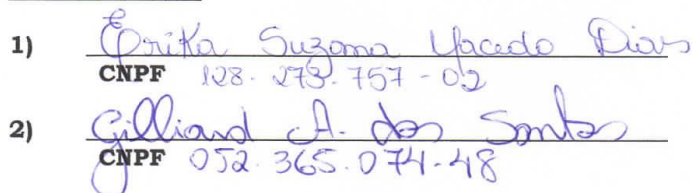 1) Erika Suzana Macedo Dias
CNPF 128.273.757-02
2) Gilliard A. dos Santos
CNPF 052.365.074-48